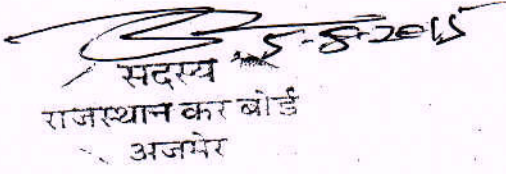 5-8-2015
सदस्य
राजस्थान कर बोर्ड
अजमेर